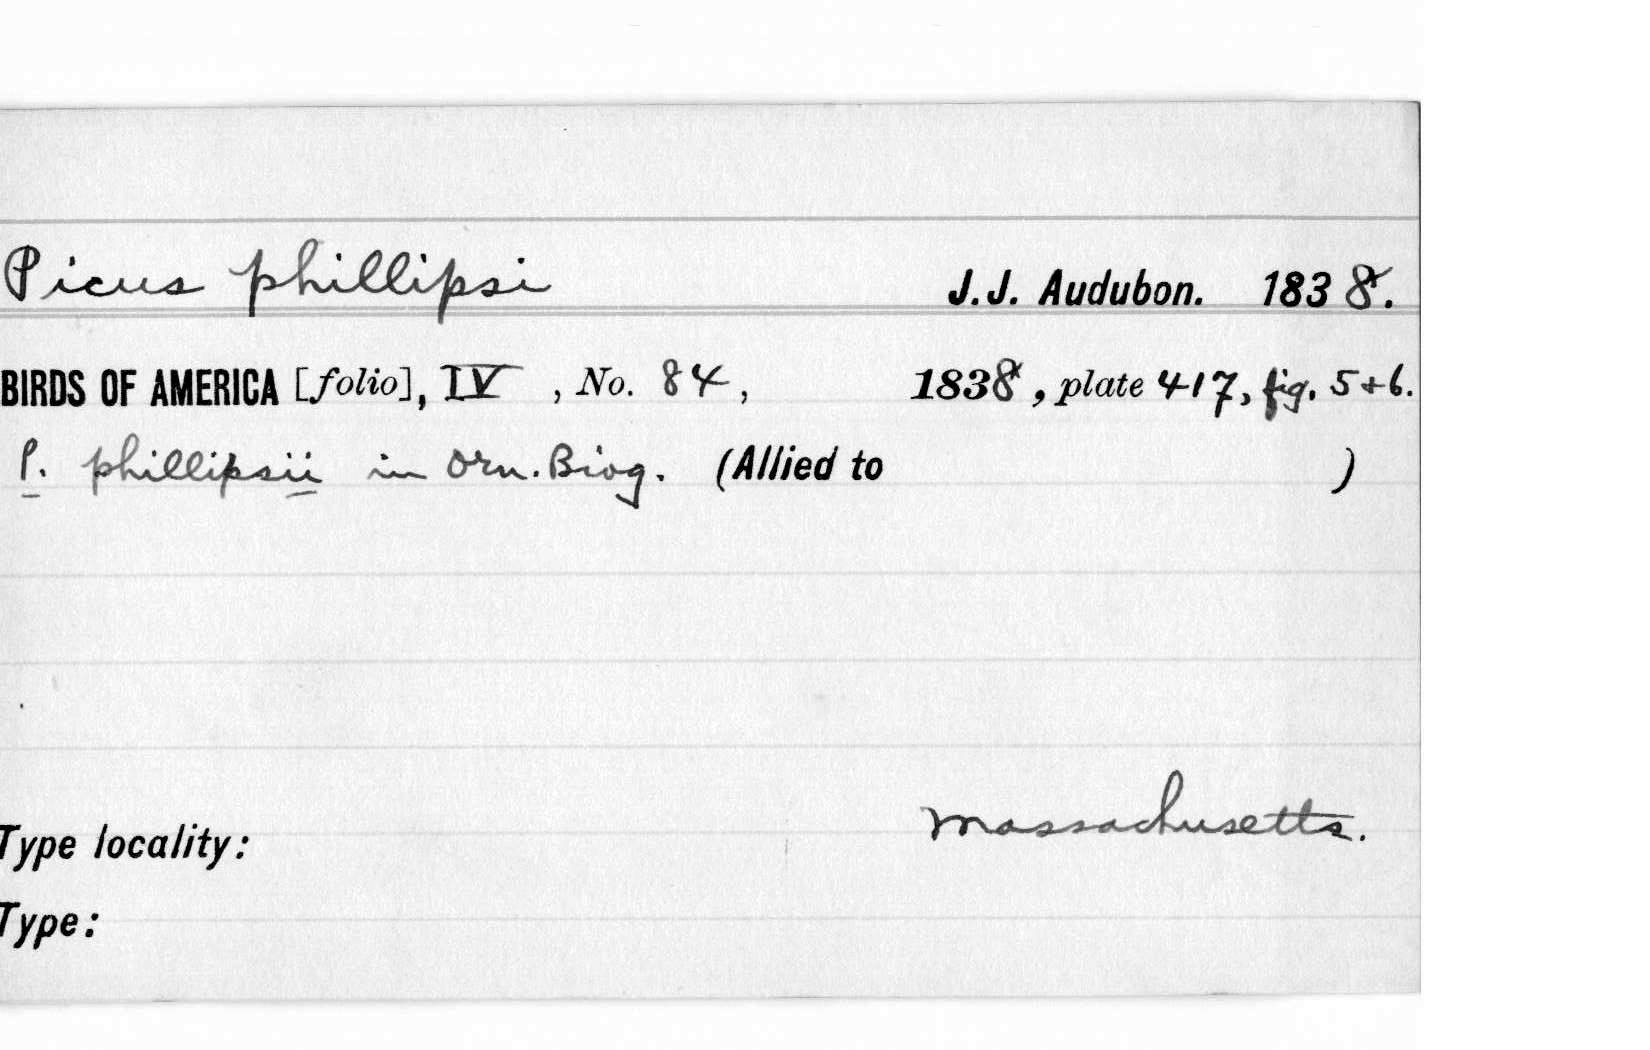 Picus phillipsi J.J. Audubon. 1838.
BIRDS OF AMERICA [folio], IV , No. 84, 1838, plate 417, fig. 5+6.
P. phillipsii in Orn. Biog. (Allied to )
Massachusetts.
Type locality:
Type: